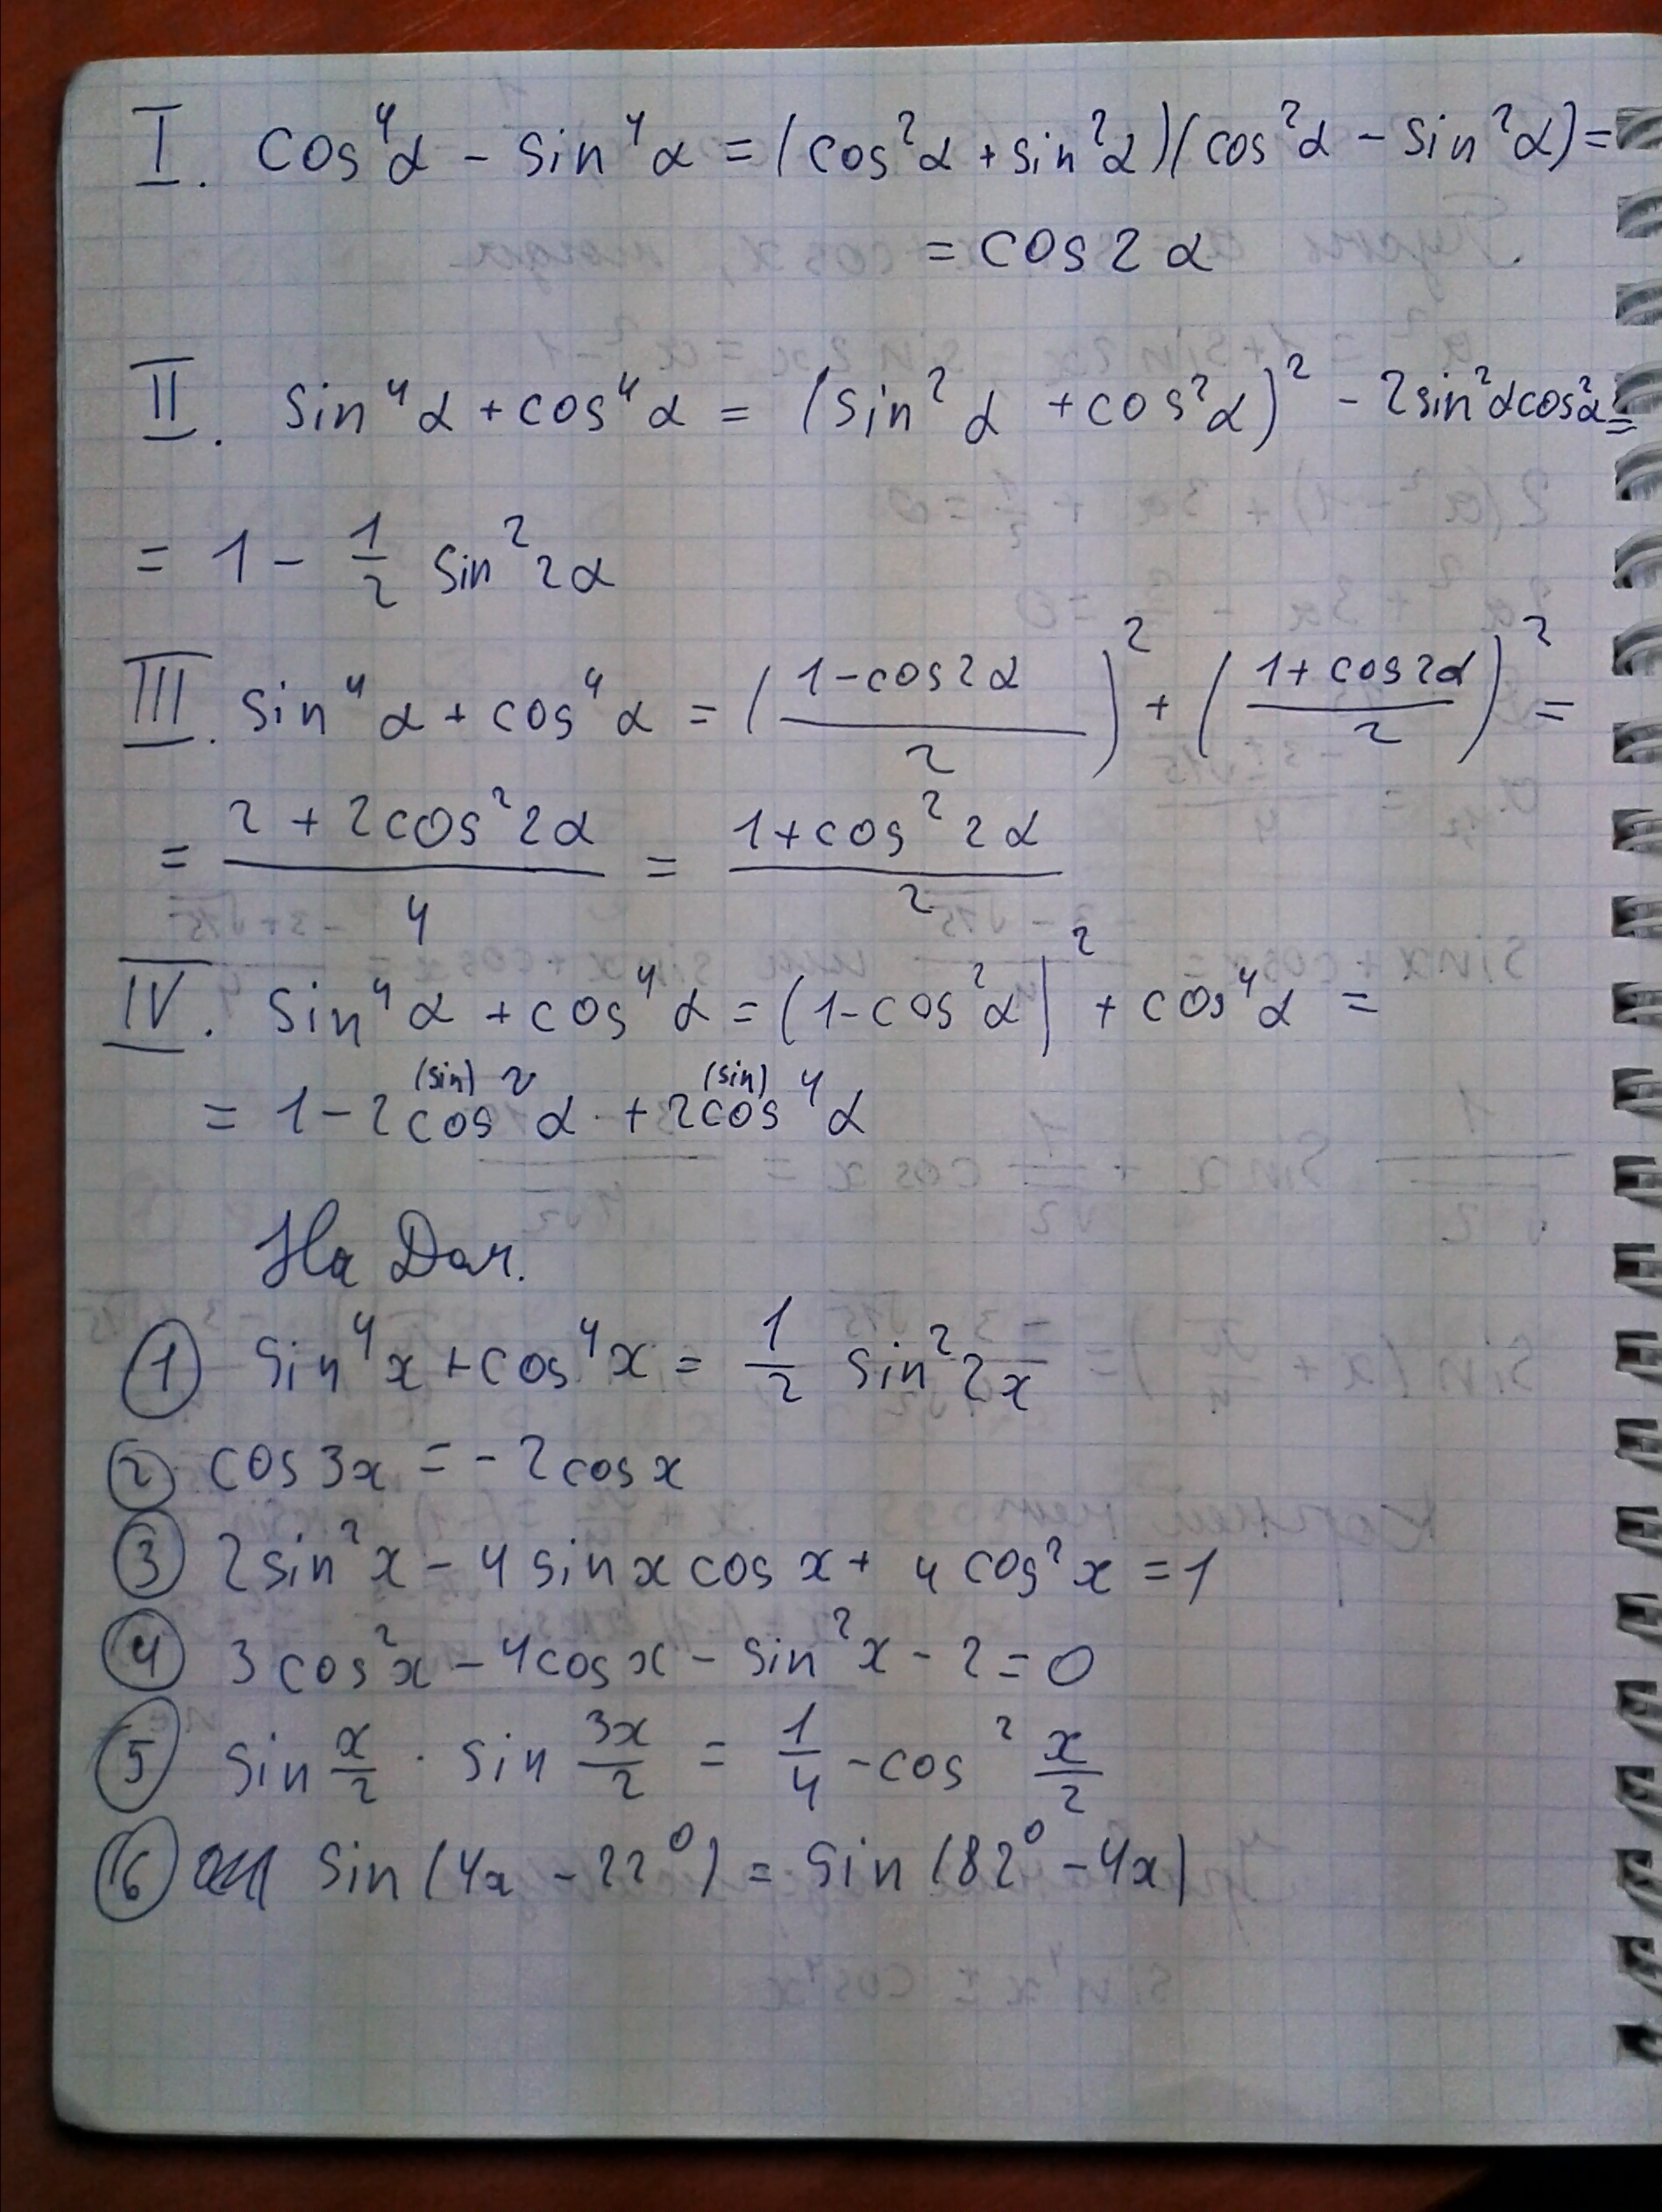 I. cos⁴α - sin⁴α = (cos²α + sin²α)(cos²α - sin²α) =
= cos2α
II. sin⁴α + cos⁴α = (sin²α + cos²α)² - 2sin²αcos²α =
= 1 - 1/2 sin²2α
III. sin⁴α + cos⁴α = ((1-cos2α)/2)² + ((1+cos2α)/2)² =
= (2 + 2cos²2α)/4 = (1+cos²2α)/2
IV. sin⁴α + cos⁴α = (1-cos²α)² + cos⁴α =
(sin) (sin)
= 1 - 2cos²α + 2cos⁴α
На Дом.
① sin⁴x + cos⁴x = 1/2 sin²2x
② cos3x = -2cosx
③ 2sin²x - 4sinxcosx + 4cos²x = 1
④ 3cos²x - 4cosx - sin²x - 2 = 0
⑤ sin x/2 · sin 3x/2 = 1/4 - cos² x/2
⑥ sin(4x - 22°) = sin(82° - 4x)